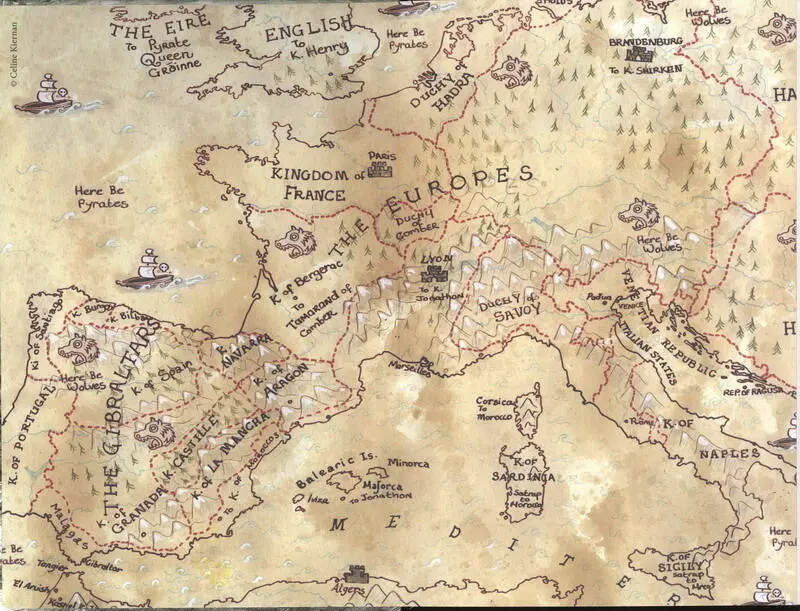 © Celine Kiernan
THE EIRE
To Pyrate
Queen
Gróinne
ENGLISH
To
K. Henry
Here Be
Pyrates
DUCHY of
HADRA
Here Be
Wolves
BRANDENBURG
To K. SHIRKEN
HA
Here Be
Pyrates
PARIS
KINGDOM of
FRANCE
THE EUROPES
DUCHY
of
COMBER
K of Bergerac
To
Tamarand of
Comber
LYON
To K.
Jonathon
Here Be
Wolves
DUCHY of
SAVOY
Padua
VENICE
VENETIAN REPUBLIC
ITALIAN STATES
REP. OF RAGUSA
H
Marseilles
K. of Santiago
K. Burgos
K. Bilbao
K. NAVARRA
K. of
ARAGON
Here Be
Wolves
K. of Spain
THE GIBRALTARS
K. OF PORTUGAL
K. CASTILLE
K. of LA MANCHA
K. of
GRANADA
To K. of Moroccos
Malagas
Corsica
To
Morocco
K. OF
SARDINIA
Satrap
to
Morocco
Rome
K. OF
NAPLES
Balearic Is.
Minorca
Majorca
To Jonathon
Ibiza
MEDITER
K. OF
SICILY
satrap
to
Here Be
Pyrates
Here
Pyrate
Tangier
Gibraltar
El Araish
Algers